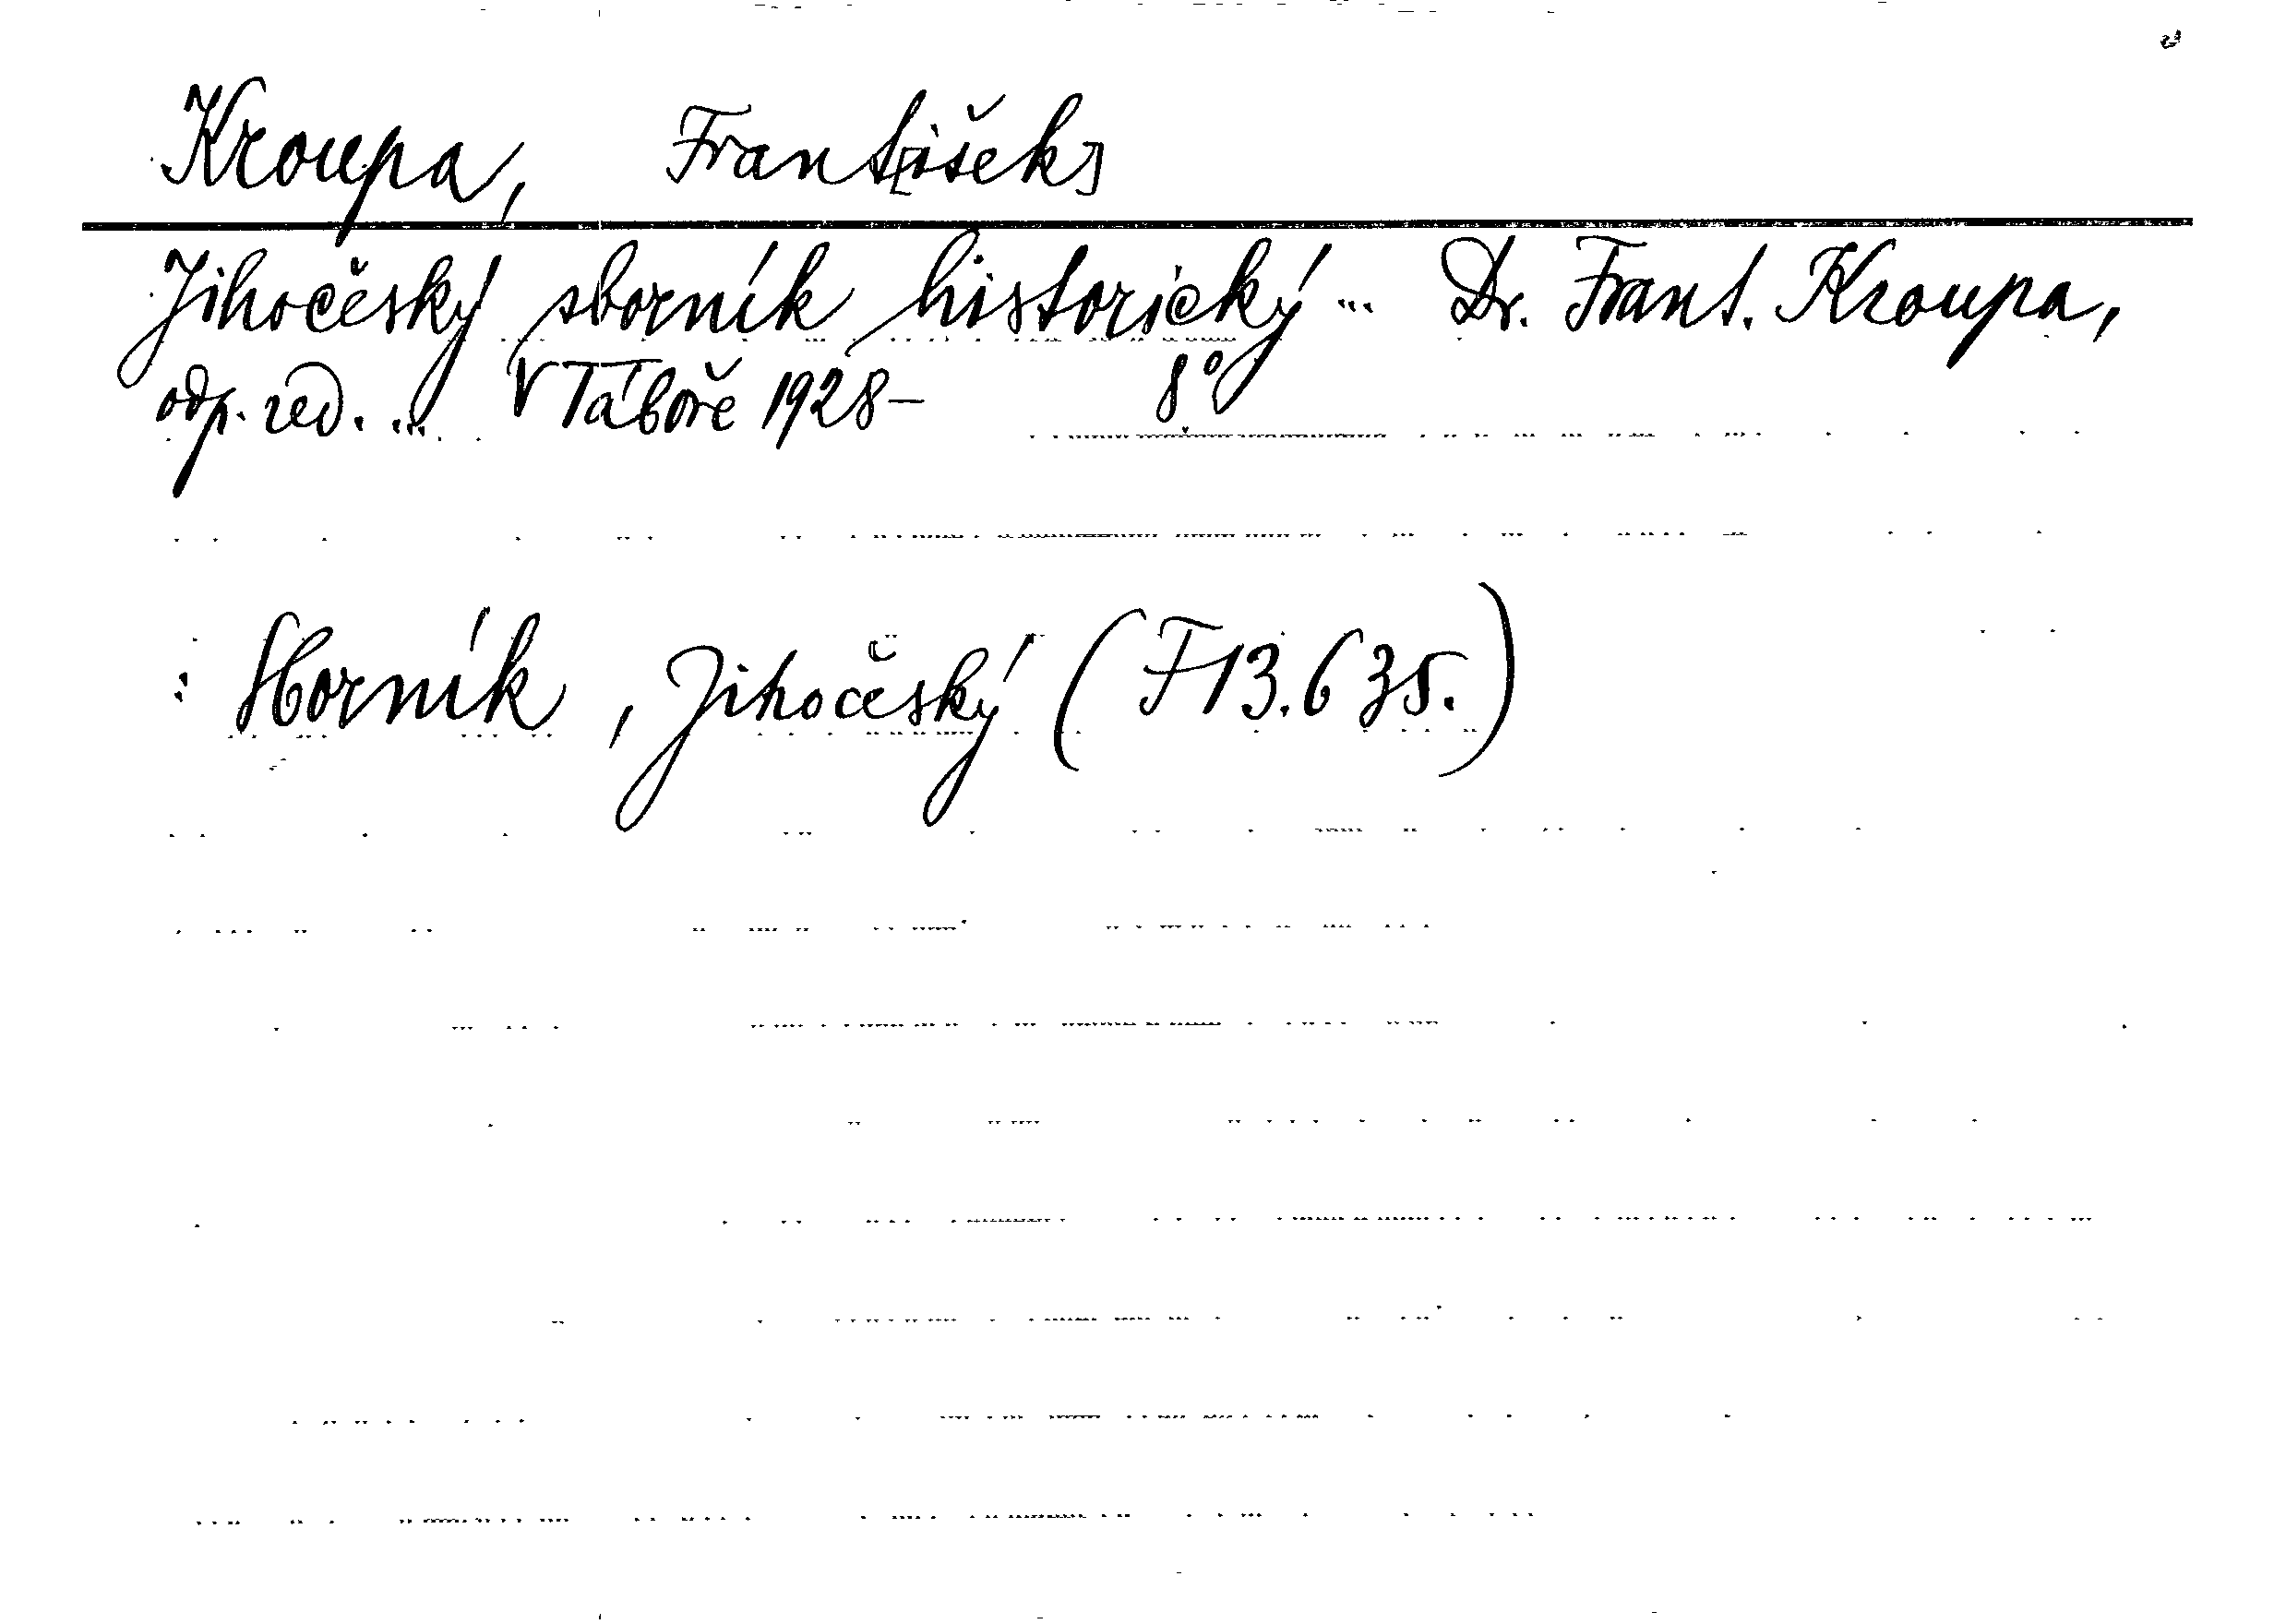 Kroupa, Frant[išek]
Jihočeský sborník historický ... Dr. Frant. Kroupa,
odp. red. ... V Táboře 1928– 8°
: Sborník, Jihočeský (F 13.635.)